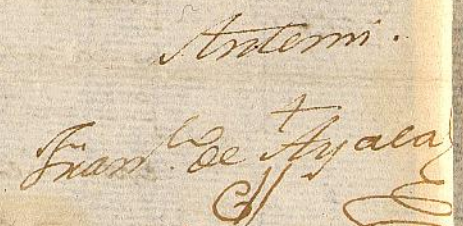 Antemi.
Fran.co de Ayala